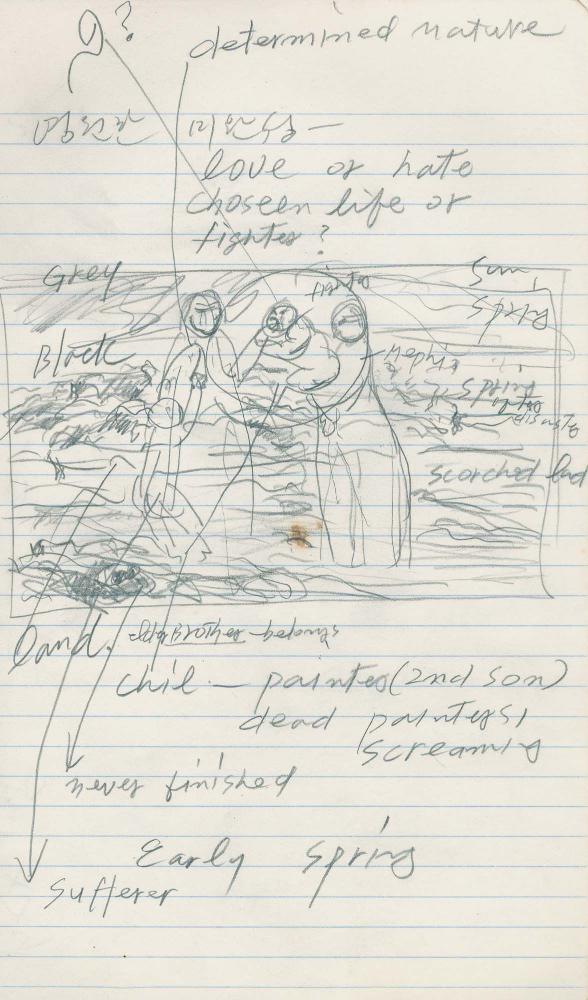 ?
determined nature
love or hate
choseen life or
fighter ?
Grey
Sun,
Birds
Black
scorched land
land.
elder Brother - belongs
chil — painter (2nd son)
dead painters,
screaming
never finished
Early spring
sufferer